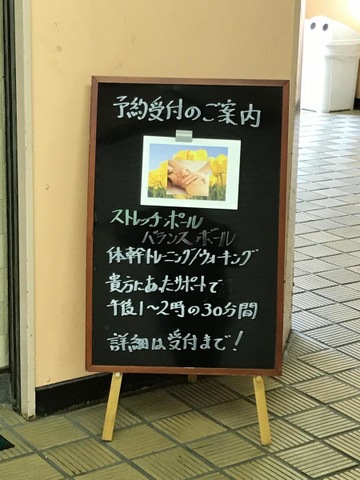 予約受付のご案内
ストレッチポール
バランスボール
体幹トレーニング/ウォーキング
貴方にあったサポートで
午后1〜2時の30分間
詳細は受付まで!